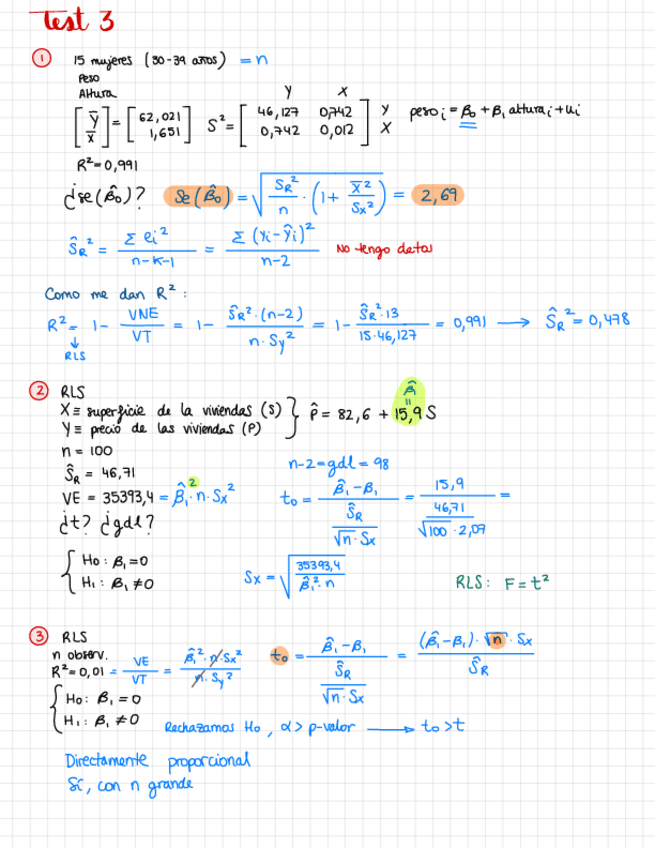 Test 3
① 15 mujeres (30-39 años) = n
Peso
Altura
[ȳ / x̄] = [62,021 / 1,651] S² = [46,127 0,742 / 0,742 0,012] Y X / Y X peso i = β₀ + β₁ altura i + u i
R² = 0,991
¿se(β̂₀)? Se(β̂₀) = √(S_R²/n · (1 + x̄²/Sx²)) = 2,69
Ŝ_R² = Σ ei² / n-k-1 = Σ (yi - ŷi)² / n-2 No tengo datos
Como me dan R²:
R² = 1 - VNE/VT = 1 - Ŝ_R² · (n-2) / n · Sy² = 1 - Ŝ_R² · 13 / 15 · 46,127 = 0,991 → Ŝ_R² = 0,478
↓
RLS
② RLS
X ≡ superficie de la viviendas (S)
Y ≡ precio de las viviendas (P)
} P̂ = 82,6 + 15,9 S
β̂
=
n = 100
Ŝ_R = 46,71
VE = 35393,4 = β̂₁² · n · Sx²
¿t? ¿gdl?
n-2 = gdl = 98
t₀ = β̂₁ - β₁ / (Ŝ_R / √n · Sx) = 15,9 / (46,71 / √100 · 2,09) =
{ H₀: β₁ = 0
H₁: β₁ ≠ 0
Sx = √(35393,4 / β̂₁² · n)
RLS: F = t²
③ RLS
n observ.
R² = 0,01 = VE/VT = β̂₁² · n · Sx² / n · Sy²
t₀ = β̂₁ - β₁ / (Ŝ_R / √n · Sx) = (β̂₁ - β₁) · √n · Sx / Ŝ_R
{ H₀: β₁ = 0
H₁: β₁ ≠ 0
Rechazamos H₀, α > p-valor → t₀ > t
Directamente proporcional
Sí, con n grande